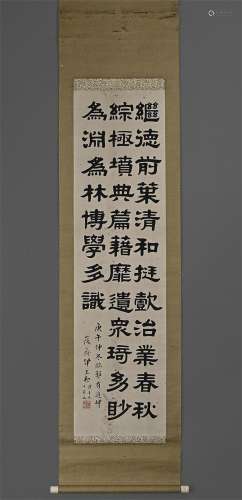 繼德前葉清和挺懿治業春秋
綜極墳典篇藉靡遺衆琦多眇
為淵為林博學多識
庚午仲冬臨